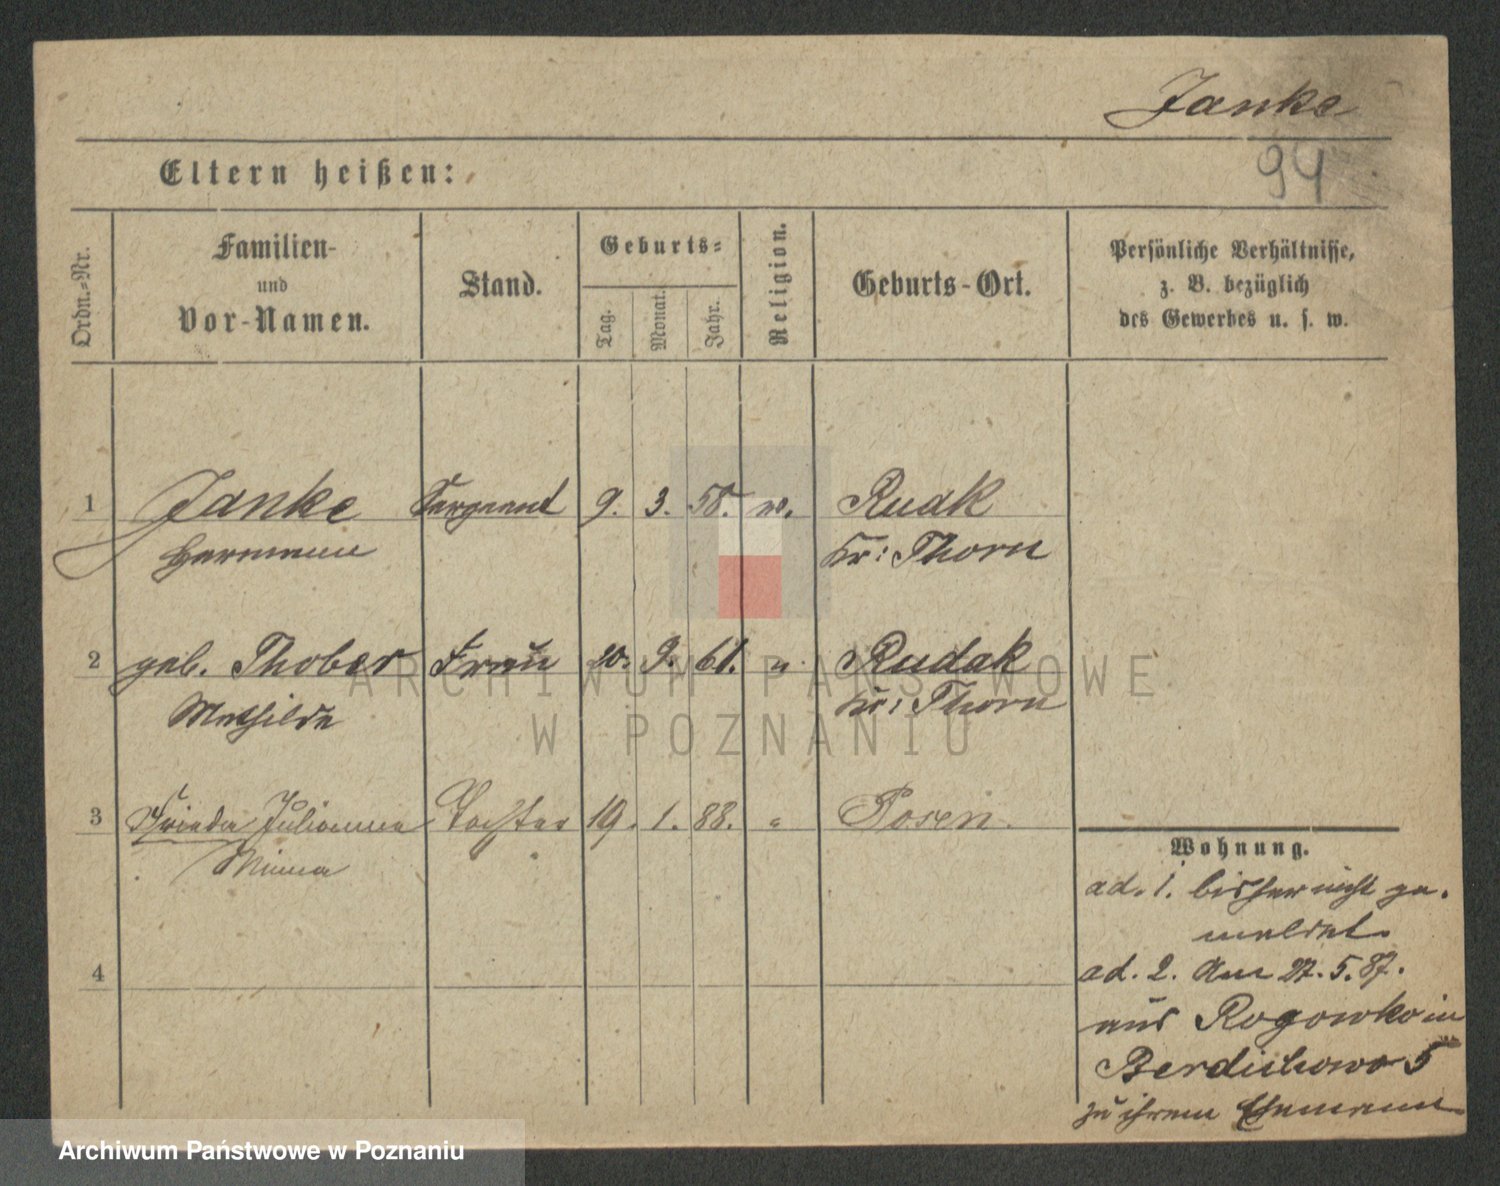 Janke
94
Eltern heißen:
Ordn.-Nr.
Familien-
und
Vor-Namen.
Stand.
Geburts-
Tag.
Monat.
Jahr.
Religion.
Geburts-Ort.
Persönliche Verhältnisse,
z. B. bezüglich
des Gewerbes u. s. w.
1 Janke Sergeant 9. 3. 58. Rudak
Hermann Kr: Thorn
2 geb. Thober Frau 20. 9. 61. Rudak
Mathilde Kr: Thorn
3 Frieda Julianna Tochter 19. 1. 88. " Posen.
Minna
4
Wohnung.
ad. 1. bisher nicht ge-
meldet.
ad. 2. Am 27. 5. 87.
aus Rogowko in
Berdichowo 5
zu ihrem Ehemann
ARCHIWUM PAŃSTWOWE
W POZNANIU
Archiwum Państwowe w Poznaniu